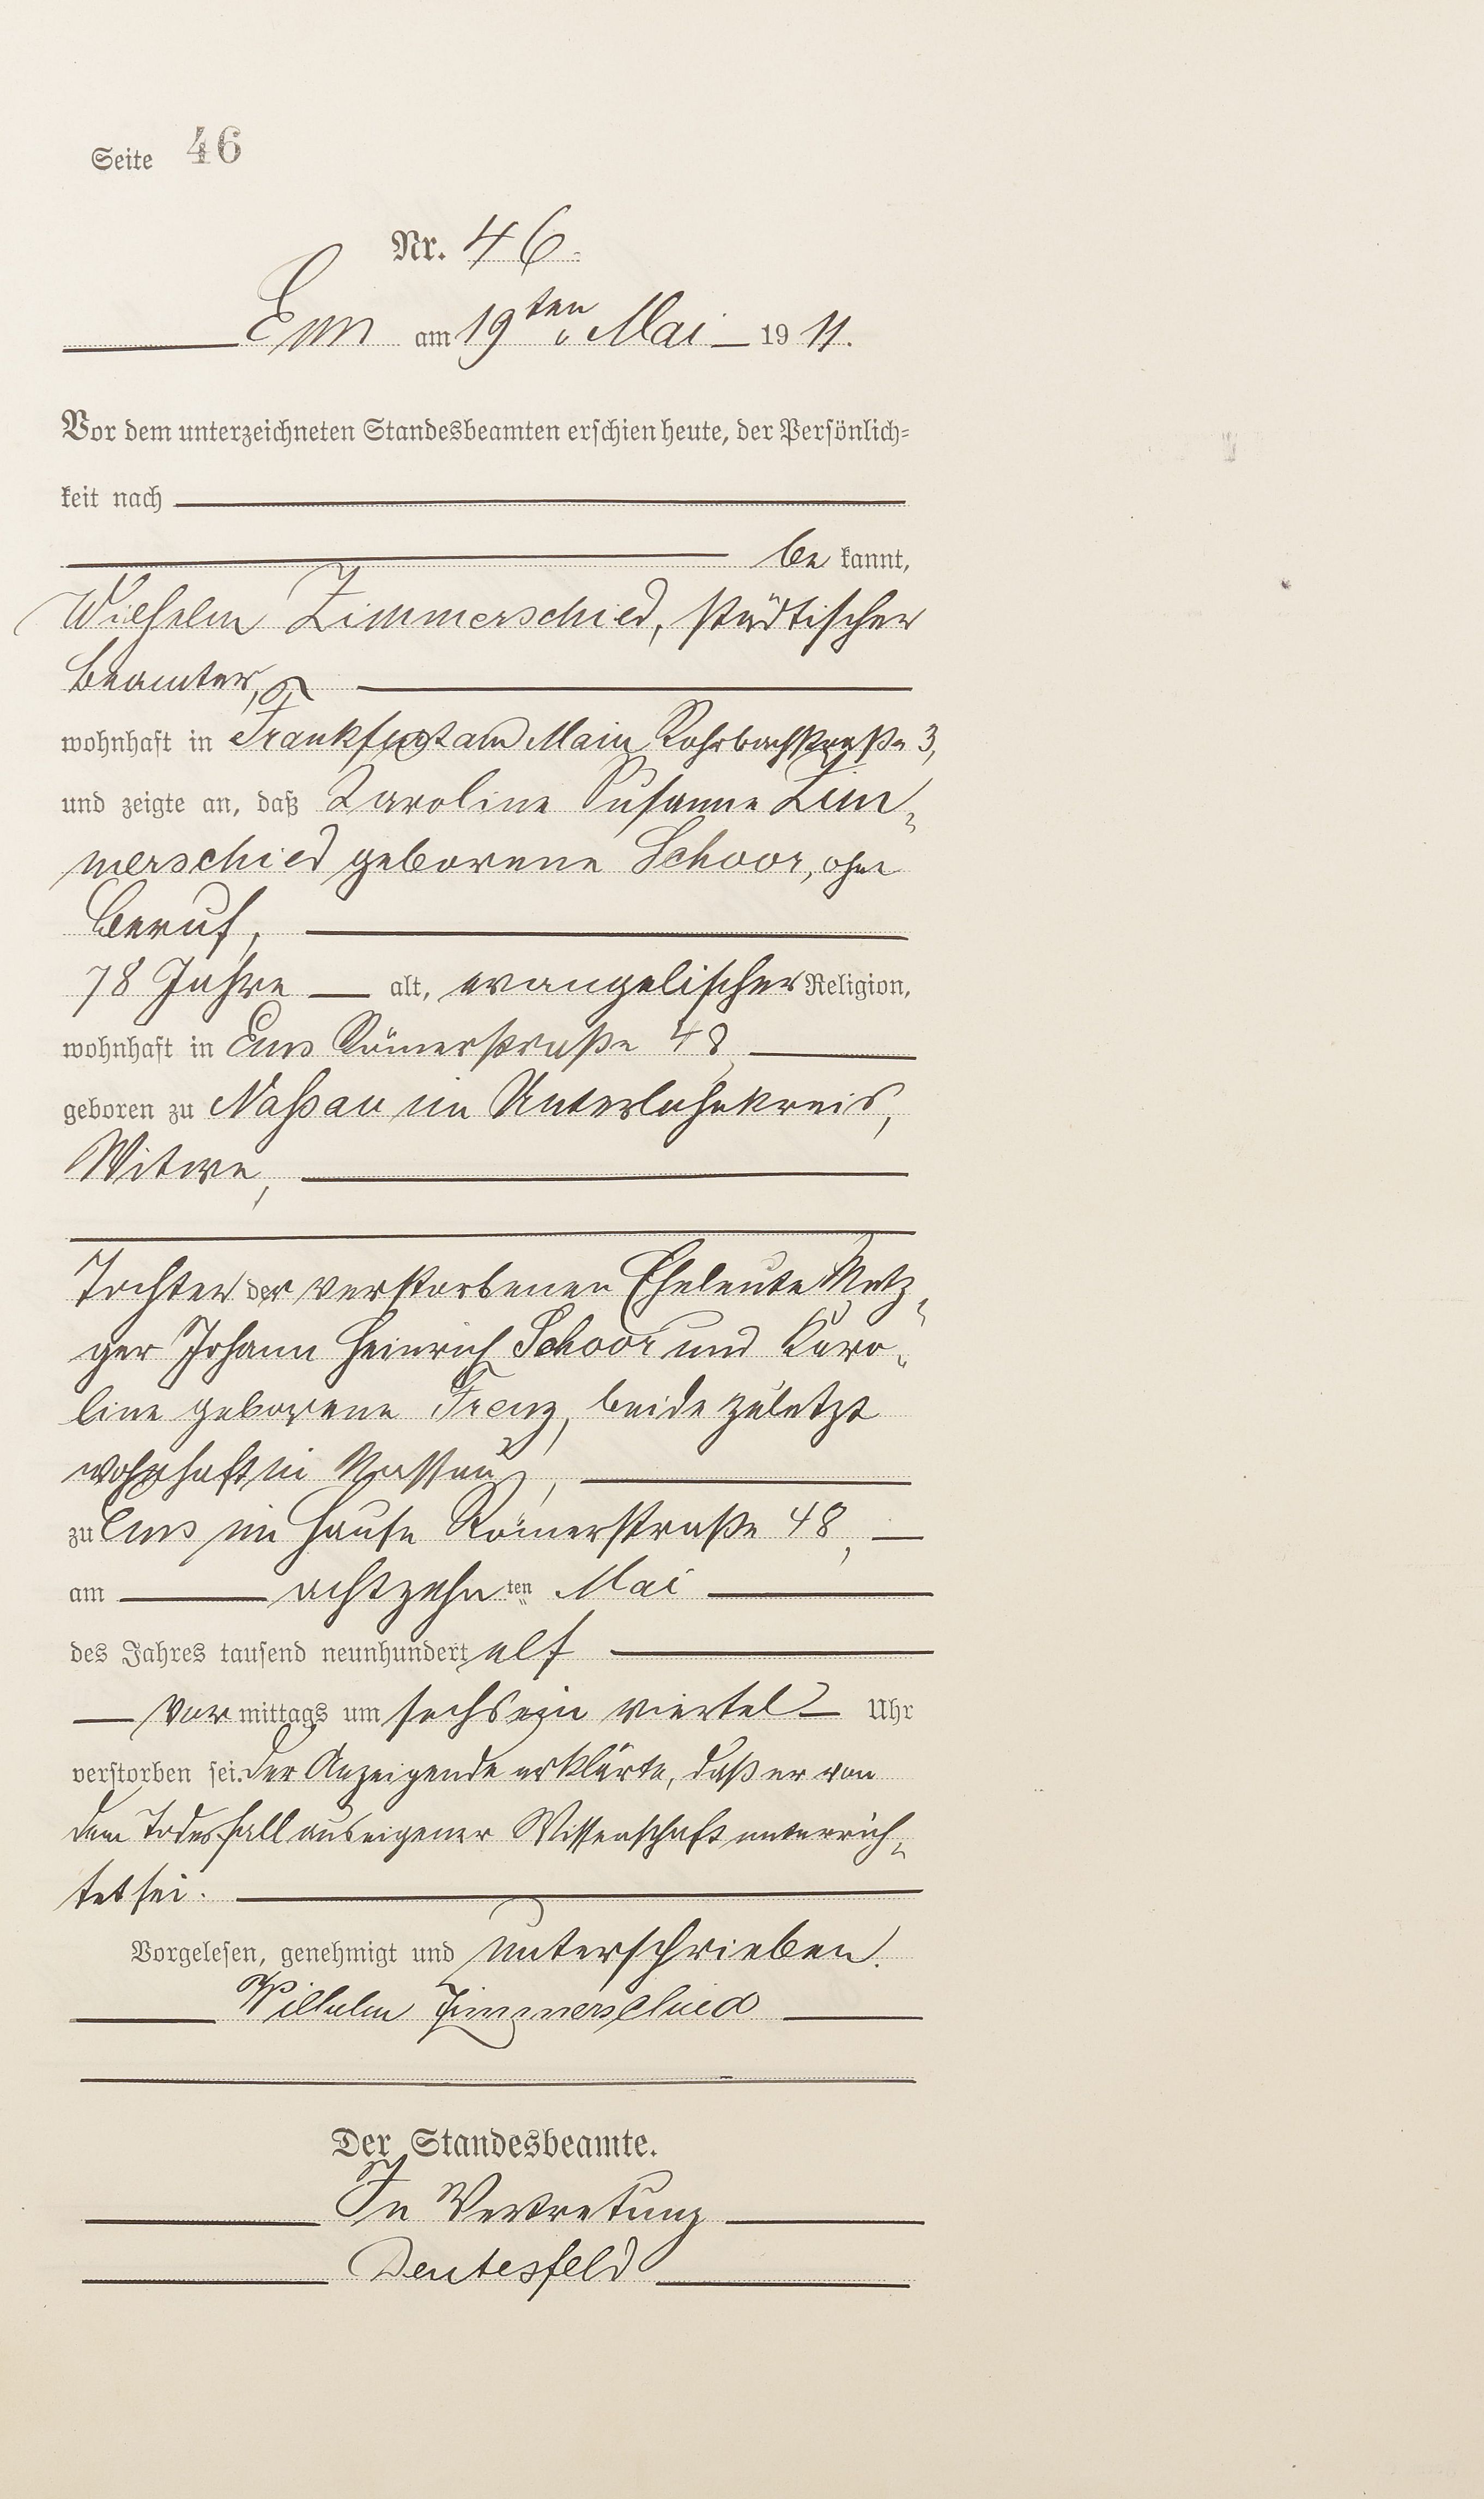 Seite 46
Nr. 46.
Ems am 19ten Mai 1911.
Vor dem unterzeichneten Standesbeamten erschien heute, der Persönlich-
keit nach
be kannt,
Wilhelm Zimmerschied, städtischer
Beamter,
wohnhaft in Frankfurt am Main Rohrbachstraße 3,
und zeigte an, daß Karoline Susanne Zim-
merschied geborene Schoor, ohne
Beruf,
78 Jahre alt, evangelischer Religion,
wohnhaft in Ems Römerstraße 48,
geboren zu Nassau im Unterlahnkreis,
Witwe,
Tochter der verstorbenen Eheleute Metz-
ger Johann Heinrich Schoor und Karo-
line geborene Trenz, beide zuletzt
wohnhaft in Nassau,
zu Ems im Hause Römerstraße 48,
am achtzehn ten Mai
des Jahres tausend neunhundert elf
Vor mittags um sechs ein viertel Uhr
verstorben sei. Der Anzeigende erklärte, daß er von
dem Todesfall aus eigener Wissenschaft unterrich-
tet sei.
Vorgelesen, genehmigt und unterschrieben.
Wilhelm Zimmerschied
Der Standesbeamte.
In Vertretung
Dentesfeld